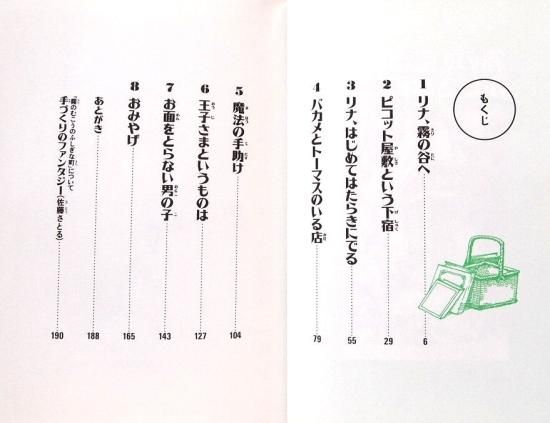 もくじ
1 リナ、霧の谷へ 6
2 ピコット屋敷という下宿 29
3 リナ、はじめてはたらきにでる 55
4 バカメとトーマスのいる店 79
5 魔法の手助け 104
6 王子さまというものは 127
7 お面をとらない男の子 143
8 おみやげ 165
あとがき 188
『霧のむこうのふしぎな町』について
手づくりのファンタジー(佐藤さとる) 190